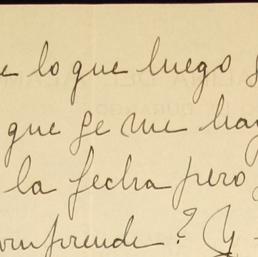 e lo que luego
que se me hay
la fecha pero
omprende? (Y